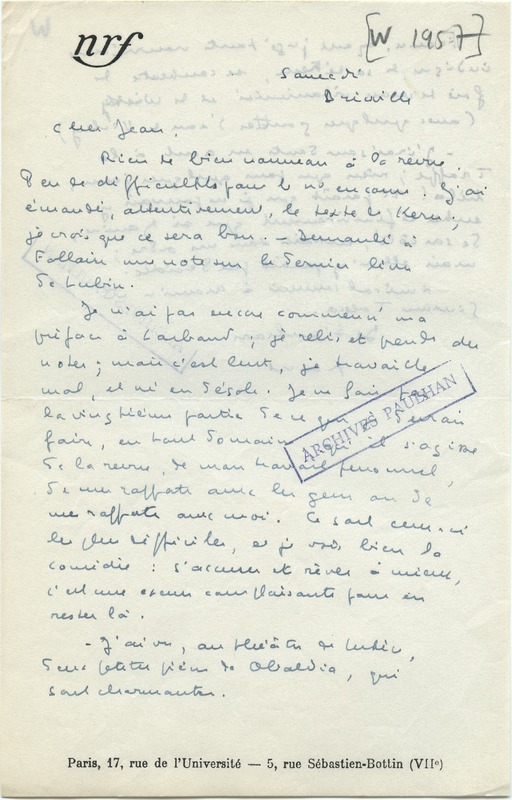 nrf
[W 1957]
samedi
Brinville
Cher Jean,
Rien de bien nouveau à la revue.
Peu de difficultés pour le n° en cours. J'ai
émondé, attentivement, le texte de Kern ;
je crois que ce sera bon. — Demandé à
Follain une note sur le dernier livre
de Lubin.
Je n'ai pas encore commencé ma
préface à Larbaud, je relis, et prends des
notes ; mais c'est lent, je travaille
mal, et m'en désole. Je ne fais
la vingtième partie de ce que je devrais
faire, en tout domaine, qu'il s'agisse
de la revue, de mon travail personnel,
de mes rapports avec les gens ou de
mes rapports avec moi. Ce sont ceux-ci
les plus difficiles, et je vois bien la
comédie : s'accuser et rêver à mieux,
c'est une excuse complaisante pour en
rester là.
— J'ai vu, au théâtre de Lutèce,
deux petites pièces de Obaldia, qui
sont charmantes.
ARCHIVES PAULHAN
Paris, 17, rue de l'Université — 5, rue Sébastien-Bottin (VIIe)